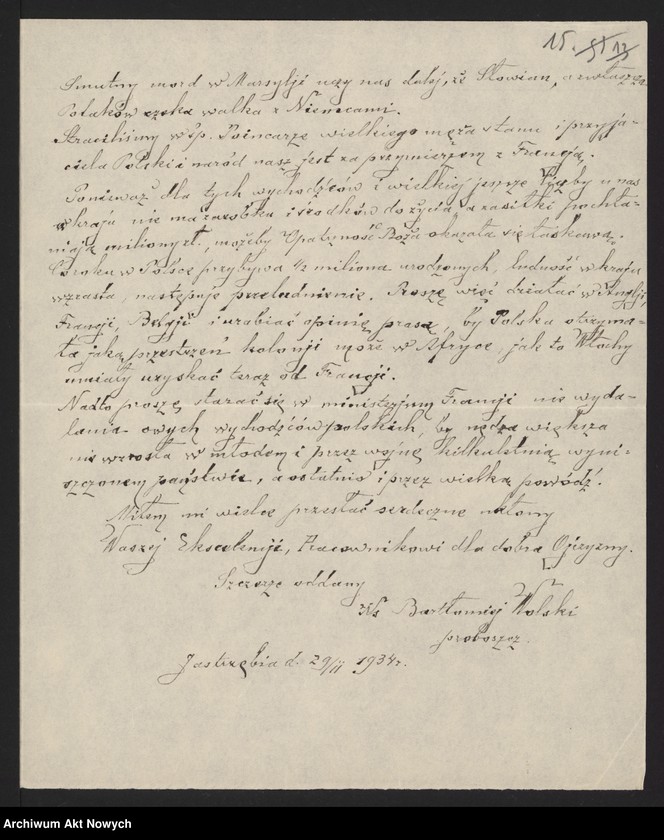 15.
Smutny mord w Marsylji uczy nas dalej, że Słowian, a zwłaszcza
Polaków czeka walka z Niemcami.
Straciliśmy w śp. Poincarze wielkiego męża stanu i przyja-
ciela Polski i naród nasz jest za przymierzem z Francją.
Ponieważ dla tych wychodźców i wielkiej jeszcze liczby u nas
w kraju nie ma zarobku i środków do życia, a zasiłki pochła-
niają miliony zł., możeby Opatrzność Boża okazała się łaskawą.
Co roku w Polsce przybywa ½ miliona urodzonych, ludność w kraju
wzrasta, następuje przeludnienie. Proszę więc działać w Anglji,
Francji, Belgji i urabiać opinię prasą, by Polska otrzyma-
ła jaką przestrzeń kolonji może w Afryce, jak to Włochy
umiały uzyskać teraz od Francji.
Nadto proszę starać się w ministerjum Francji nie wyda-
lania owych wychodźców polskich, by nędza większa
nie wzrosła w młodem i przez wojnę kilkuletnią wyni-
szczonem państwie, a ostatnio i przez wielką powódź.
Miłem mi wielce przesłać serdeczne ukłony
Waszej Ekscelencji, Pracownikowi dla dobra Ojczyzny.
Szczerze oddany
Ks Bartłomiej Wolski
proboszcz.
Jastrzębia d. 29/II 1934 r.
Archiwum Akt Nowych